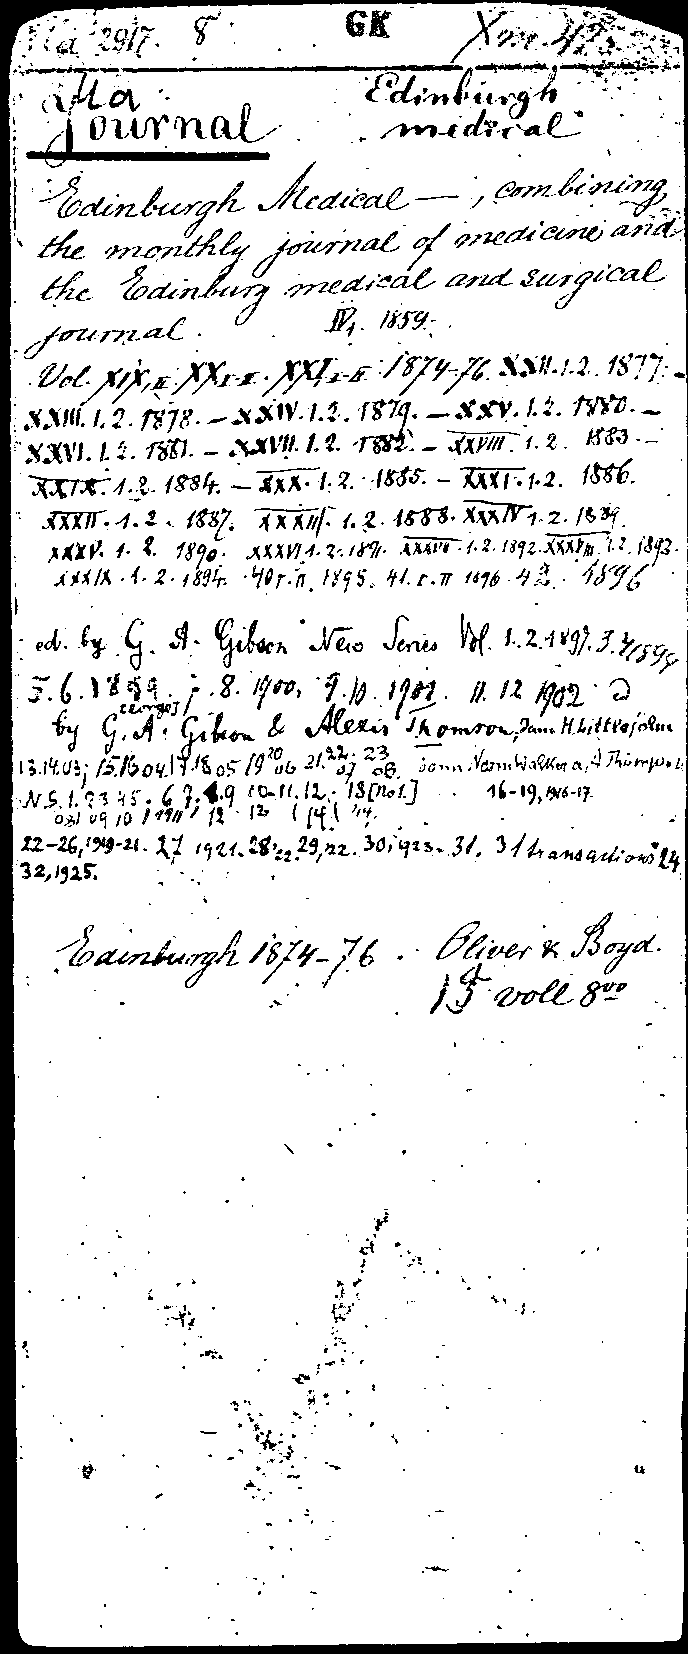 Ma 2917. 8 GK
Ma
Journal Edinburgh
medical
Edinburgh Medical — , combining
the monthly journal of medicine and
the Edinburg medical and surgical
journal. IV, 1859.
Vol. XIX,II XXI-II. XXI,I-II 1874-76. XXII.1.2. 1877. -
XXIII.1.2. 1878. - XXIV.1.2. 1879. - XXV.1.2. 1880. -
XXVI.1.2. 1881. - XXVII.1.2. 1882. - XXVIII. 1.2. 1883. -
XXIX. 1.2. 1884. - XXX. 1.2. 1885. - XXXI. 1.2. 1886.
XXXII. 1.2. 1887. XXXIII. 1.2. 1888. XXXIV 1.2. 1889.
XXXV. 1. 2. 1890. XXXVI 1.2. 1891. XXXVII. 1.2. 1892. XXXVIII. 1.2. 1893.
XXXIX. 1. 2. 1894. 40 I. II. 1895. 41. I. II 1896. 42. 1896
ed. by G. A. Gibson New Series Vol. 1.2. 1897. 3.4 1898
5. 6. 1899. 8. 1900, 9. 10. 1901. 11. 12 1902
George
by G. A. Gibson & Alexis Thomson, Littlejohn
13.14.03; 15.16 04. 17.18 05 19 20 06 21.22. 07 23 08.
N.S. 1. 2 3 4 5. 6 7. 8.9 10-11. 12. 13 [No 1.] 16-19, 1916-17.
08 09 10 1911 12 13 14
22-26, 1919-21. 27 1921. 28, 22. 29, 22. 30, 1923. 31. 31 transactions 24
32, 1925.
Edinburgh 1874-76. Oliver & Boyd.
15 voll 8vo